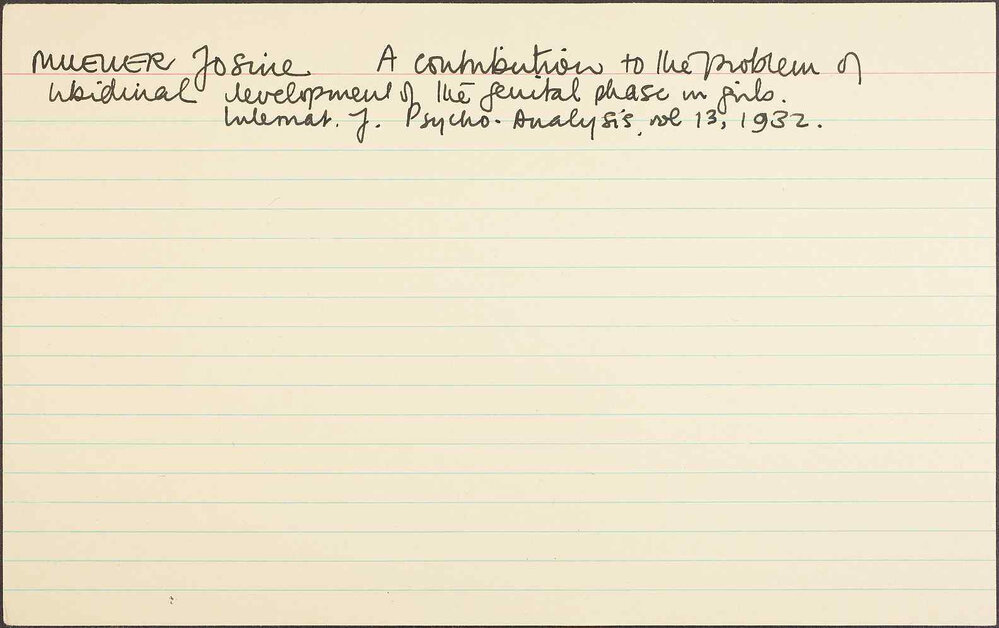 MUELLER Josine A contribution to the problem of
libidinal development of the genital phase in girls.
Internat. J. Psycho-Analysis, vol 13, 1932.